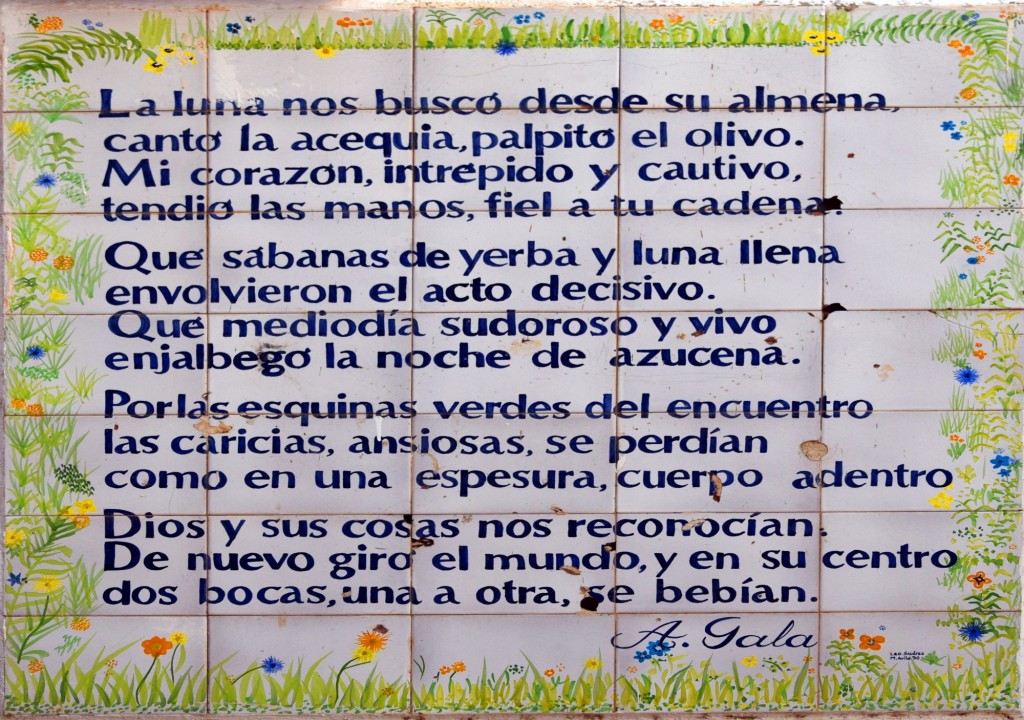 La luna nos buscó desde su almena,
cantó la acequia, palpitó el olivo.
Mi corazón, intrépido y cautivo,
tendió las manos, fiel a tu cadena.
Qué sábanas de yerba y luna llena
envolvieron el acto decisivo.
Qué mediodía sudoroso y vivo
enjalbegó la noche de azucena.
Por las esquinas verdes del encuentro
las caricias, ansiosas, se perdían
como en una espesura, cuerpo adentro
Dios y sus cosas nos reconocían.
De nuevo giró el mundo, y en su centro
dos bocas, una a otra, se bebían.
A. Gala